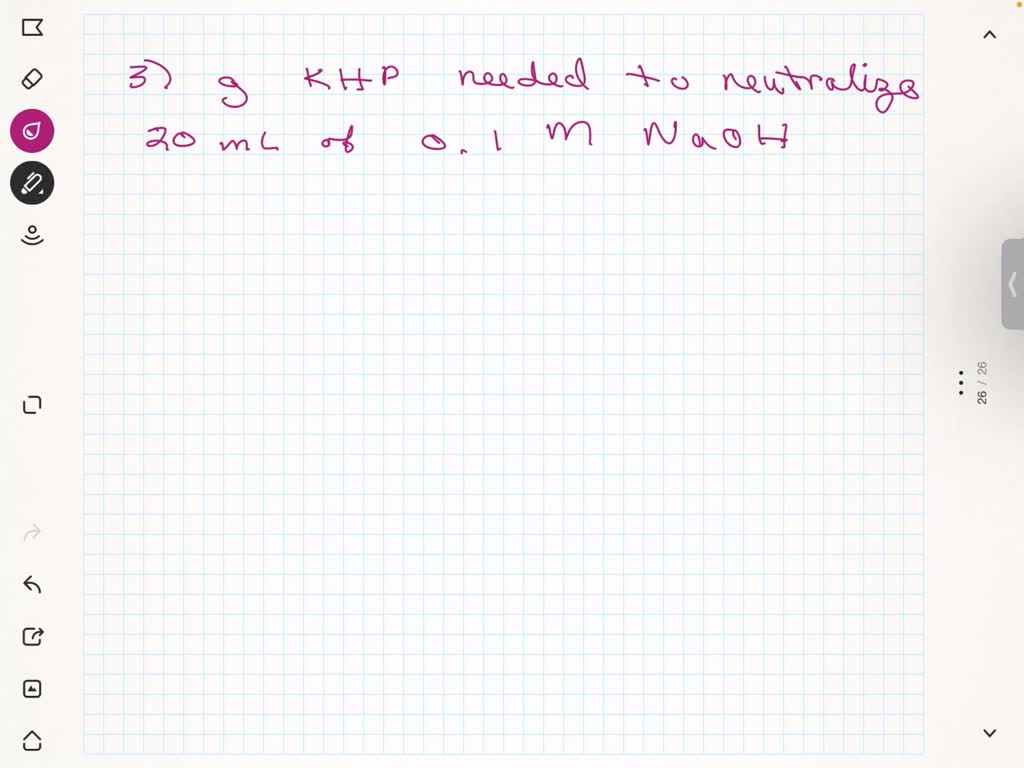 3) g KHP needed to neutralize
20 mL of 0.1 M NaOH
26 / 26